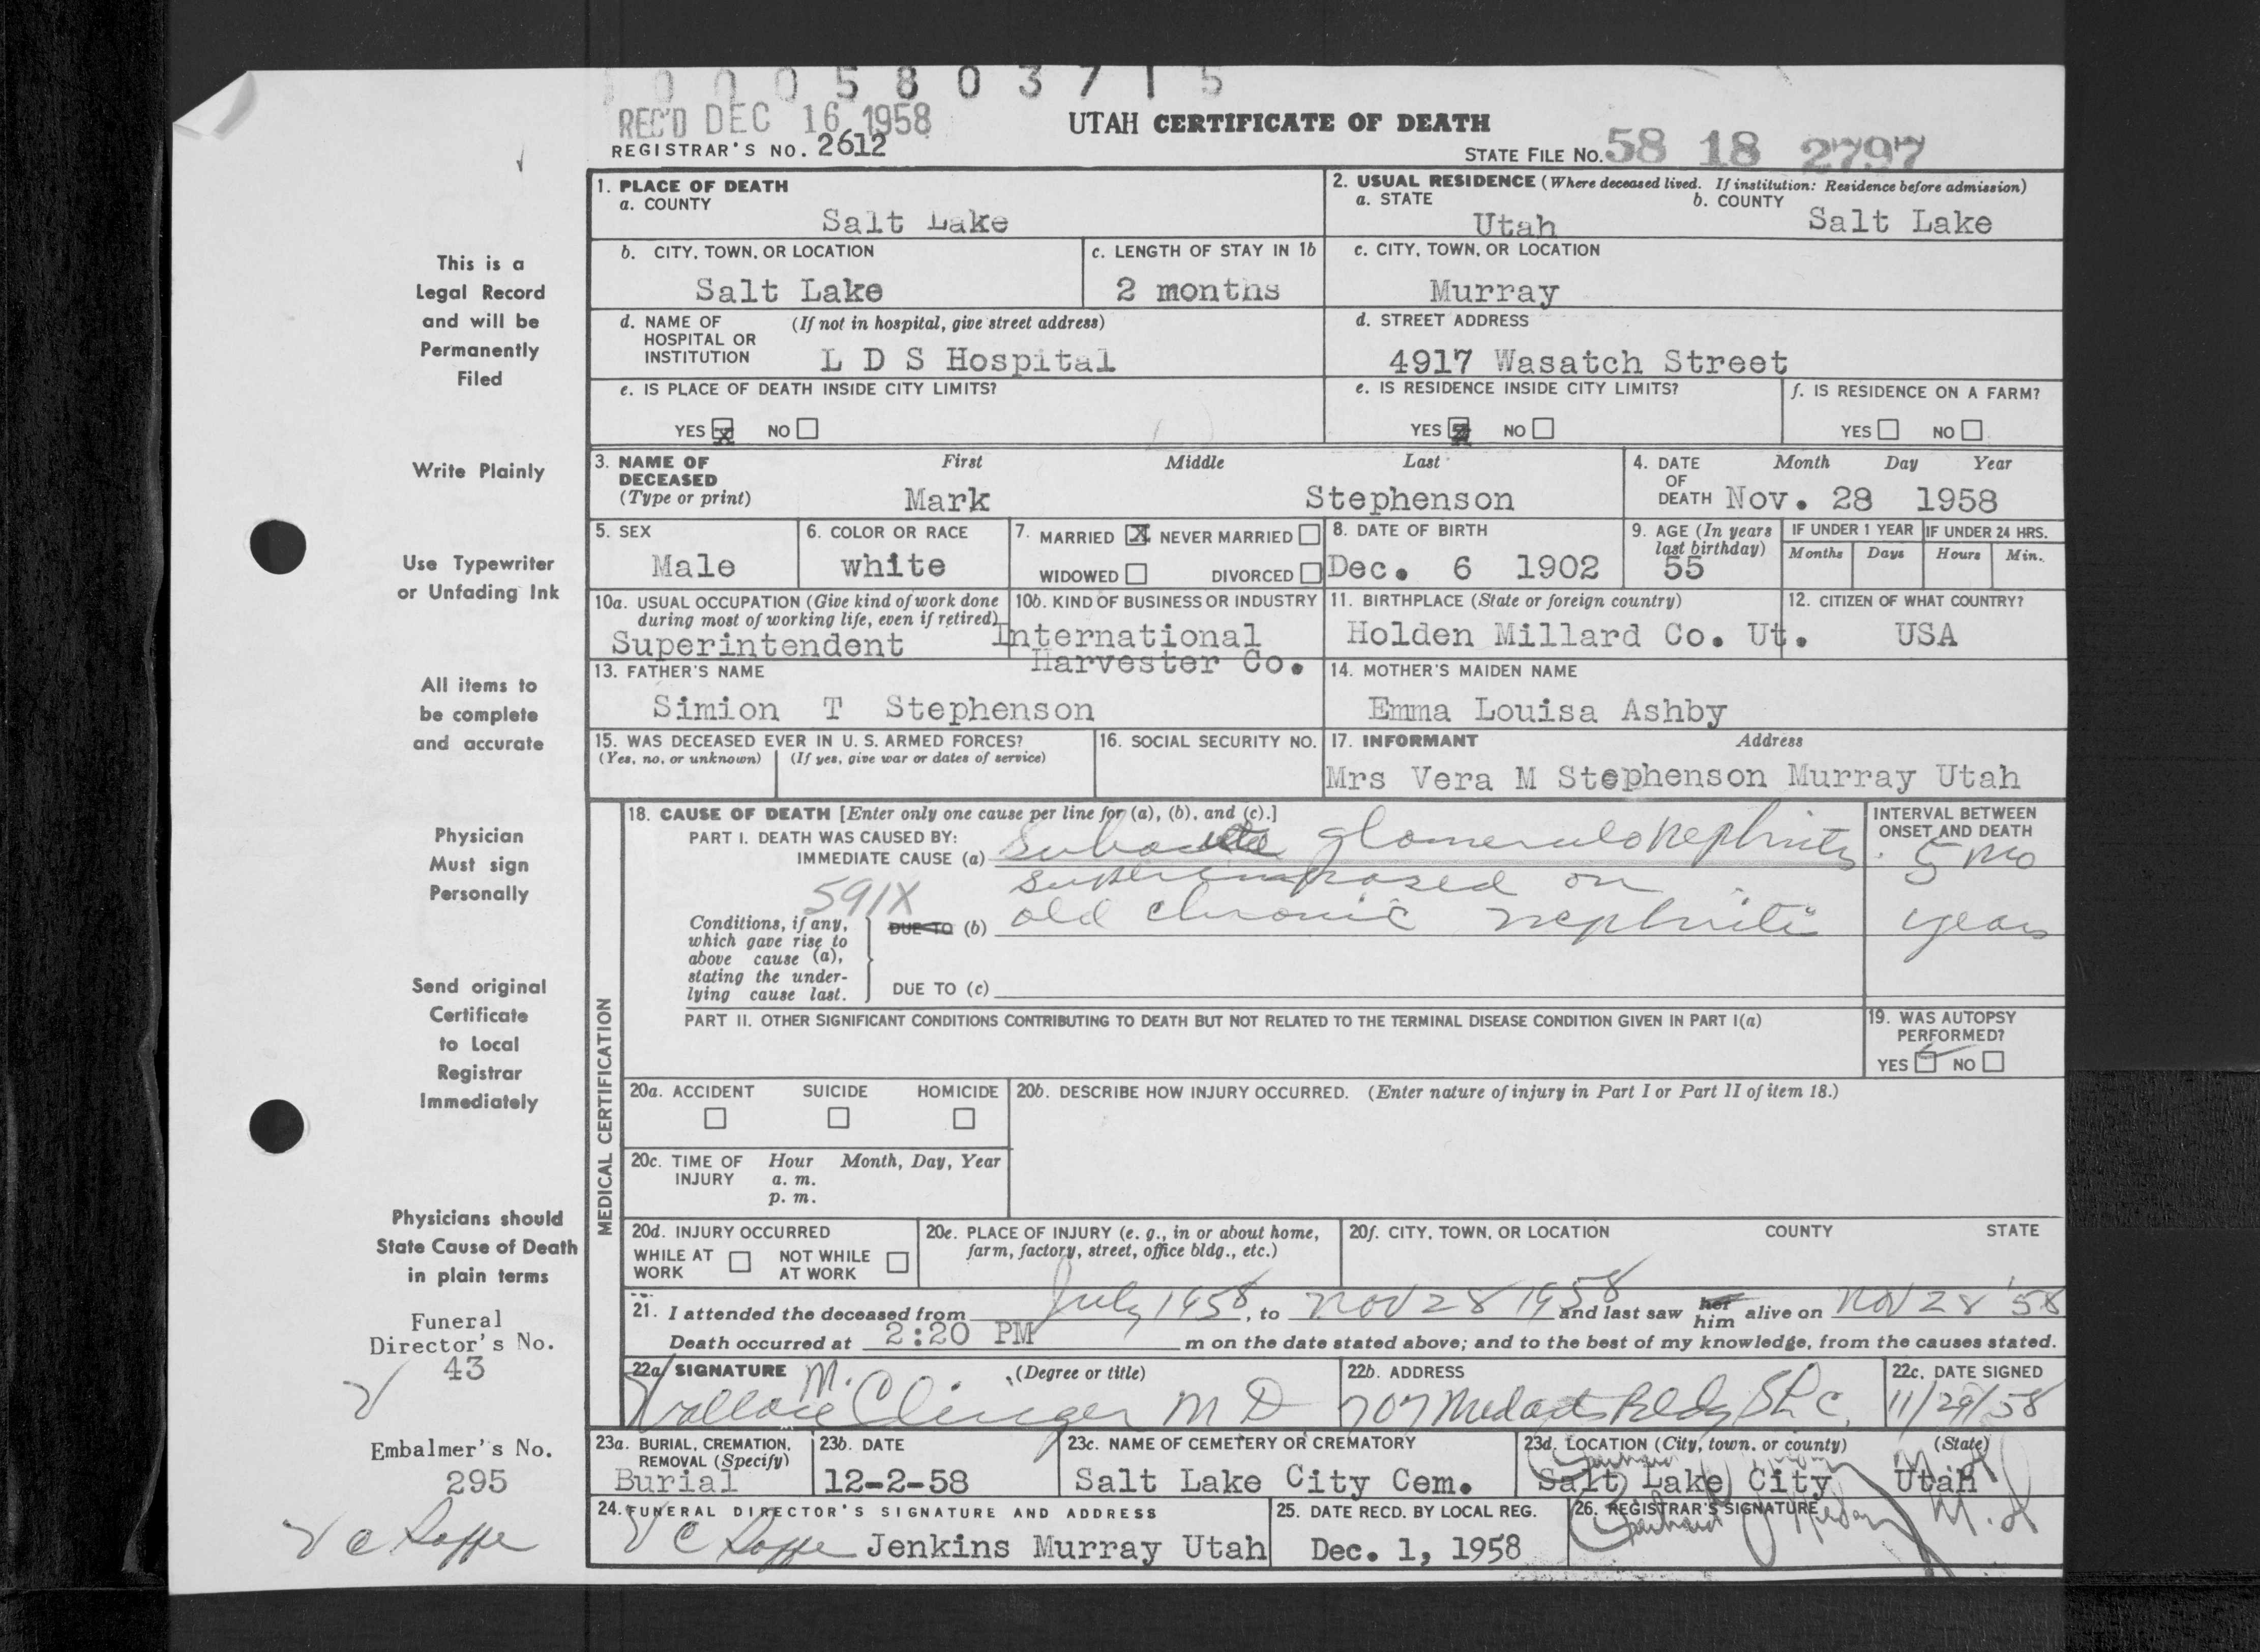 0 0 0 5 8 0 3 7 1 5
REC'D DEC 16 1958
UTAH CERTIFICATE OF DEATH
REGISTRAR'S NO. 2612
STATE FILE NO. 58 18 2797
This is a
Legal Record
and will be
Permanently
Filed
Write Plainly
Use Typewriter
or Unfading Ink
All items to
be complete
and accurate
Physician
Must sign
Personally
Send original
Certificate
to Local
Registrar
Immediately
Physicians should
State Cause of Death
in plain terms
Funeral
Director's No.
43
Embalmer's No.
295
1. PLACE OF DEATH
a. COUNTY
Salt Lake
2. USUAL RESIDENCE (Where deceased lived. If institution: Residence before admission)
a. STATE b. COUNTY
Utah Salt Lake
b. CITY, TOWN, OR LOCATION
Salt Lake
c. LENGTH OF STAY IN 1b
2 months
c. CITY, TOWN, OR LOCATION
Murray
d. NAME OF (If not in hospital, give street address)
HOSPITAL OR
INSTITUTION L D S Hospital
d. STREET ADDRESS
4917 Wasatch Street
e. IS PLACE OF DEATH INSIDE CITY LIMITS?
YES X NO
e. IS RESIDENCE INSIDE CITY LIMITS?
YES X NO
f. IS RESIDENCE ON A FARM?
YES NO
3. NAME OF First Middle Last
DECEASED
(Type or print) Mark Stephenson
4. DATE Month Day Year
OF
DEATH Nov. 28 1958
5. SEX
Male
6. COLOR OR RACE
white
7. MARRIED X NEVER MARRIED
WIDOWED DIVORCED
8. DATE OF BIRTH
Dec. 6 1902
9. AGE (In years
last birthday)
55
IF UNDER 1 YEAR IF UNDER 24 HRS.
Months Days Hours Min.
10a. USUAL OCCUPATION (Give kind of work done
during most of working life, even if retired)
Superintendent
10b. KIND OF BUSINESS OR INDUSTRY
International
Harvester Co.
11. BIRTHPLACE (State or foreign country)
Holden Millard Co. Ut.
12. CITIZEN OF WHAT COUNTRY?
USA
13. FATHER'S NAME
Simion T Stephenson
14. MOTHER'S MAIDEN NAME
Emma Louisa Ashby
15. WAS DECEASED EVER IN U. S. ARMED FORCES?
(Yes, no, or unknown) (If yes, give war or dates of service)
16. SOCIAL SECURITY NO.
17. INFORMANT Address
Mrs Vera M Stephenson Murray Utah
MEDICAL CERTIFICATION
18. CAUSE OF DEATH [Enter only one cause per line for (a), (b), and (c).]
PART I. DEATH WAS CAUSED BY:
IMMEDIATE CAUSE (a) Subacute glomerulonephritis
superimposed on
591X
Conditions, if any,
which gave rise to
above cause (a),
stating the under-
lying cause last.
DUE TO (b) old chronic nephritis
DUE TO (c)
INTERVAL BETWEEN
ONSET AND DEATH
5 mo
years
PART II. OTHER SIGNIFICANT CONDITIONS CONTRIBUTING TO DEATH BUT NOT RELATED TO THE TERMINAL DISEASE CONDITION GIVEN IN PART I(a)
19. WAS AUTOPSY
PERFORMED?
YES NO
20a. ACCIDENT SUICIDE HOMICIDE
20b. DESCRIBE HOW INJURY OCCURRED. (Enter nature of injury in Part I or Part II of item 18.)
20c. TIME OF Hour Month, Day, Year
INJURY a. m.
p. m.
20d. INJURY OCCURRED
WHILE AT NOT WHILE
WORK AT WORK
20e. PLACE OF INJURY (e. g., in or about home,
farm, factory, street, office bldg., etc.)
20f. CITY, TOWN, OR LOCATION COUNTY STATE
21. I attended the deceased from July 1958, to Nov 28 1958 and last saw her him alive on Nov 28 '58
Death occurred at 2:20 PM m on the date stated above; and to the best of my knowledge, from the causes stated.
22a. SIGNATURE (Degree or title)
Wallace M. Clinger M D
22b. ADDRESS
707 Med arts Bldg SLC
22c. DATE SIGNED
11/29/58
23a. BURIAL, CREMATION,
REMOVAL (Specify)
Burial
23b. DATE
12-2-58
23c. NAME OF CEMETERY OR CREMATORY
Salt Lake City Cem.
23d. LOCATION (City, town, or county) (State)
Salt Lake City Utah
24. FUNERAL DIRECTOR'S SIGNATURE AND ADDRESS
Jenkins Murray Utah
25. DATE RECD. BY LOCAL REG.
Dec. 1, 1958
26. REGISTRAR'S SIGNATURE
M.D